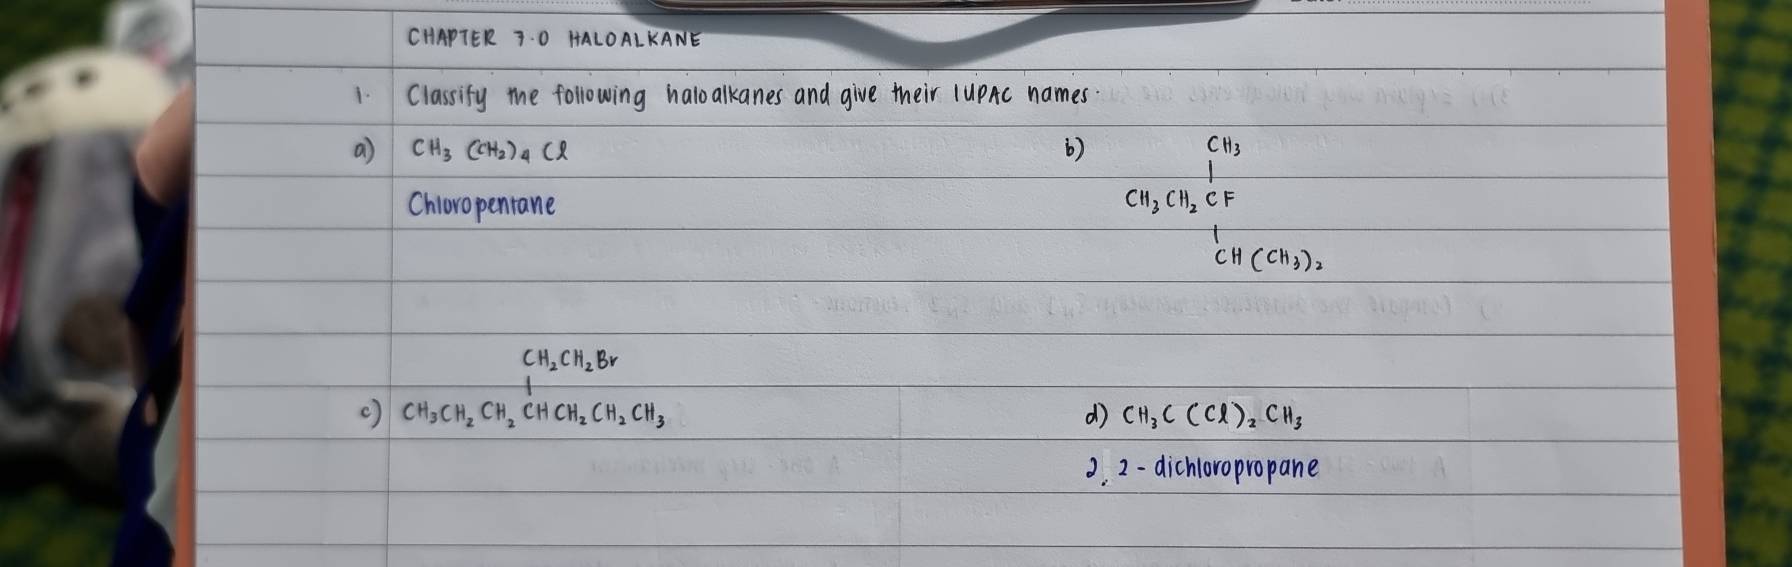 CHAPTER 7.0 HALOALKANE
1. Classify the following haloalkanes and give their IUPAC names.
a) CH₃ (CH₂)₄ Cl
Chloropentane
b) CH₃
|
CH₃ CH₂ C F
|
CH (CH₃)₂
CH₂CH₂Br
|
c) CH₃CH₂ CH₂ CH CH₂ CH₂ CH₃
d) CH₃C (Cl)₂ CH₃
2, 2 - dichloropropane